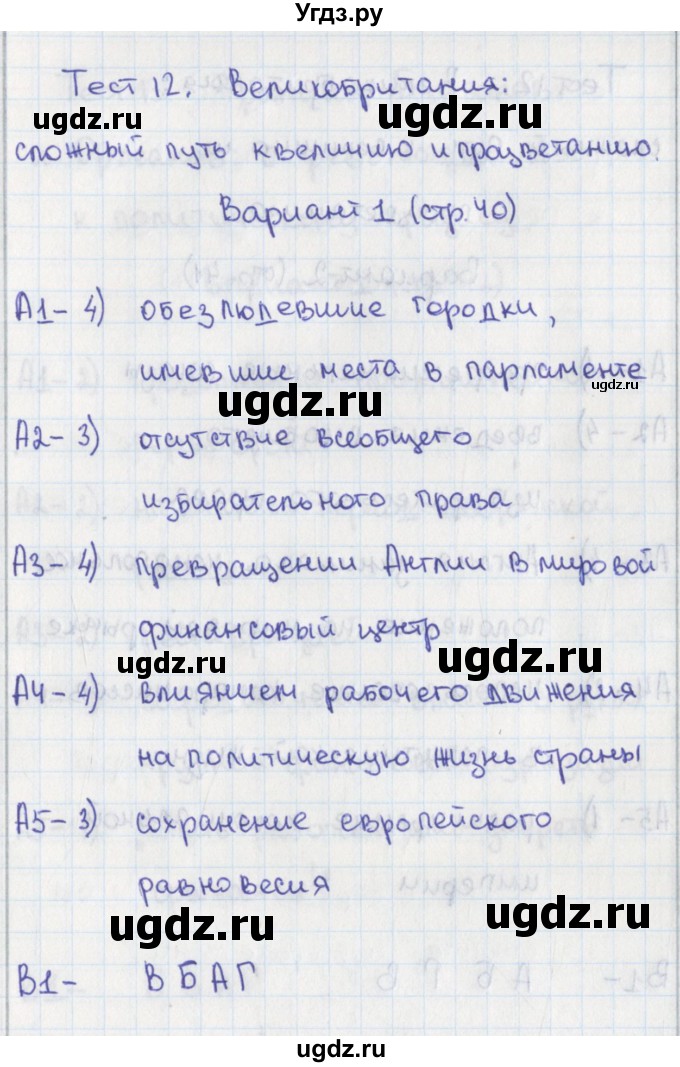 Угдз.ру
Тест 12. Великобритания:
сложный путь к величию и процветанию.
Вариант 1 (стр. 40)
А1 - 4) обезлюдевшие городки,
имевшие места в парламенте
А2 - 3) отсутствие всеобщего
избирательного права
А3 - 4) превращении Англии в мировой
финансовый центр
А4 - 4) влиянием рабочего движения
на политическую жизнь страны
А5 - 3) сохранение европейского
равновесия
В1 - В Б А Г
ugdz.ru
ugdz.ru
ugdz.ru
ugdz.ru
ugdz.ru
ugdz.ru
ugdz.ru
ugdz.ru
ugdz.ru